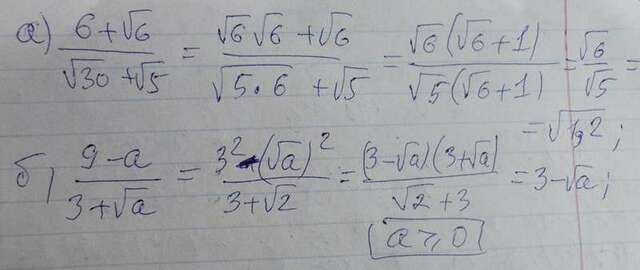 а) (6+√6)/(√30+√5) = (√6√6+√6)/(√5·6+√5) = (√6(√6+1))/(√5(√6+1)) = √6/√5 =
= √1,2;
б) (9-a)/(3+√a) = (3²-(√a)²)/(3+√2) = ((3-√a)(3+√a))/(√2+3) = 3-√a;
a⩾0